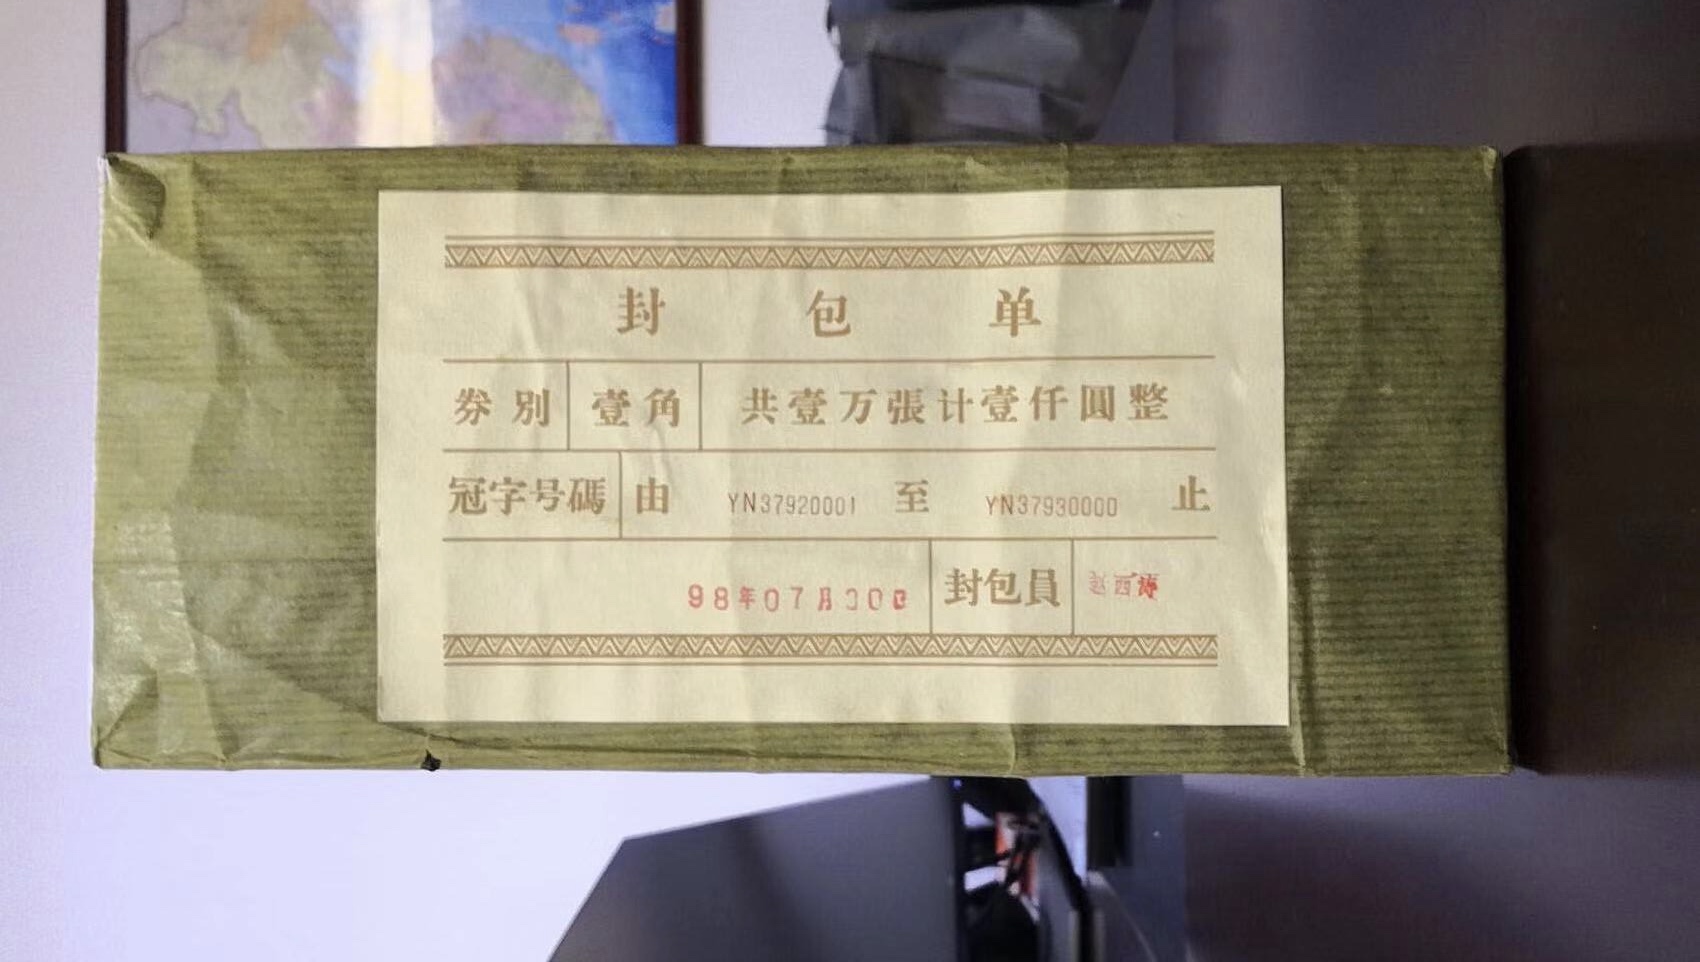 封包单
券別 壹角 共壹万張计壹仟圓整
冠字号碼 由 YN37920001 至 YN37930000 止
98年07月30日 封包員